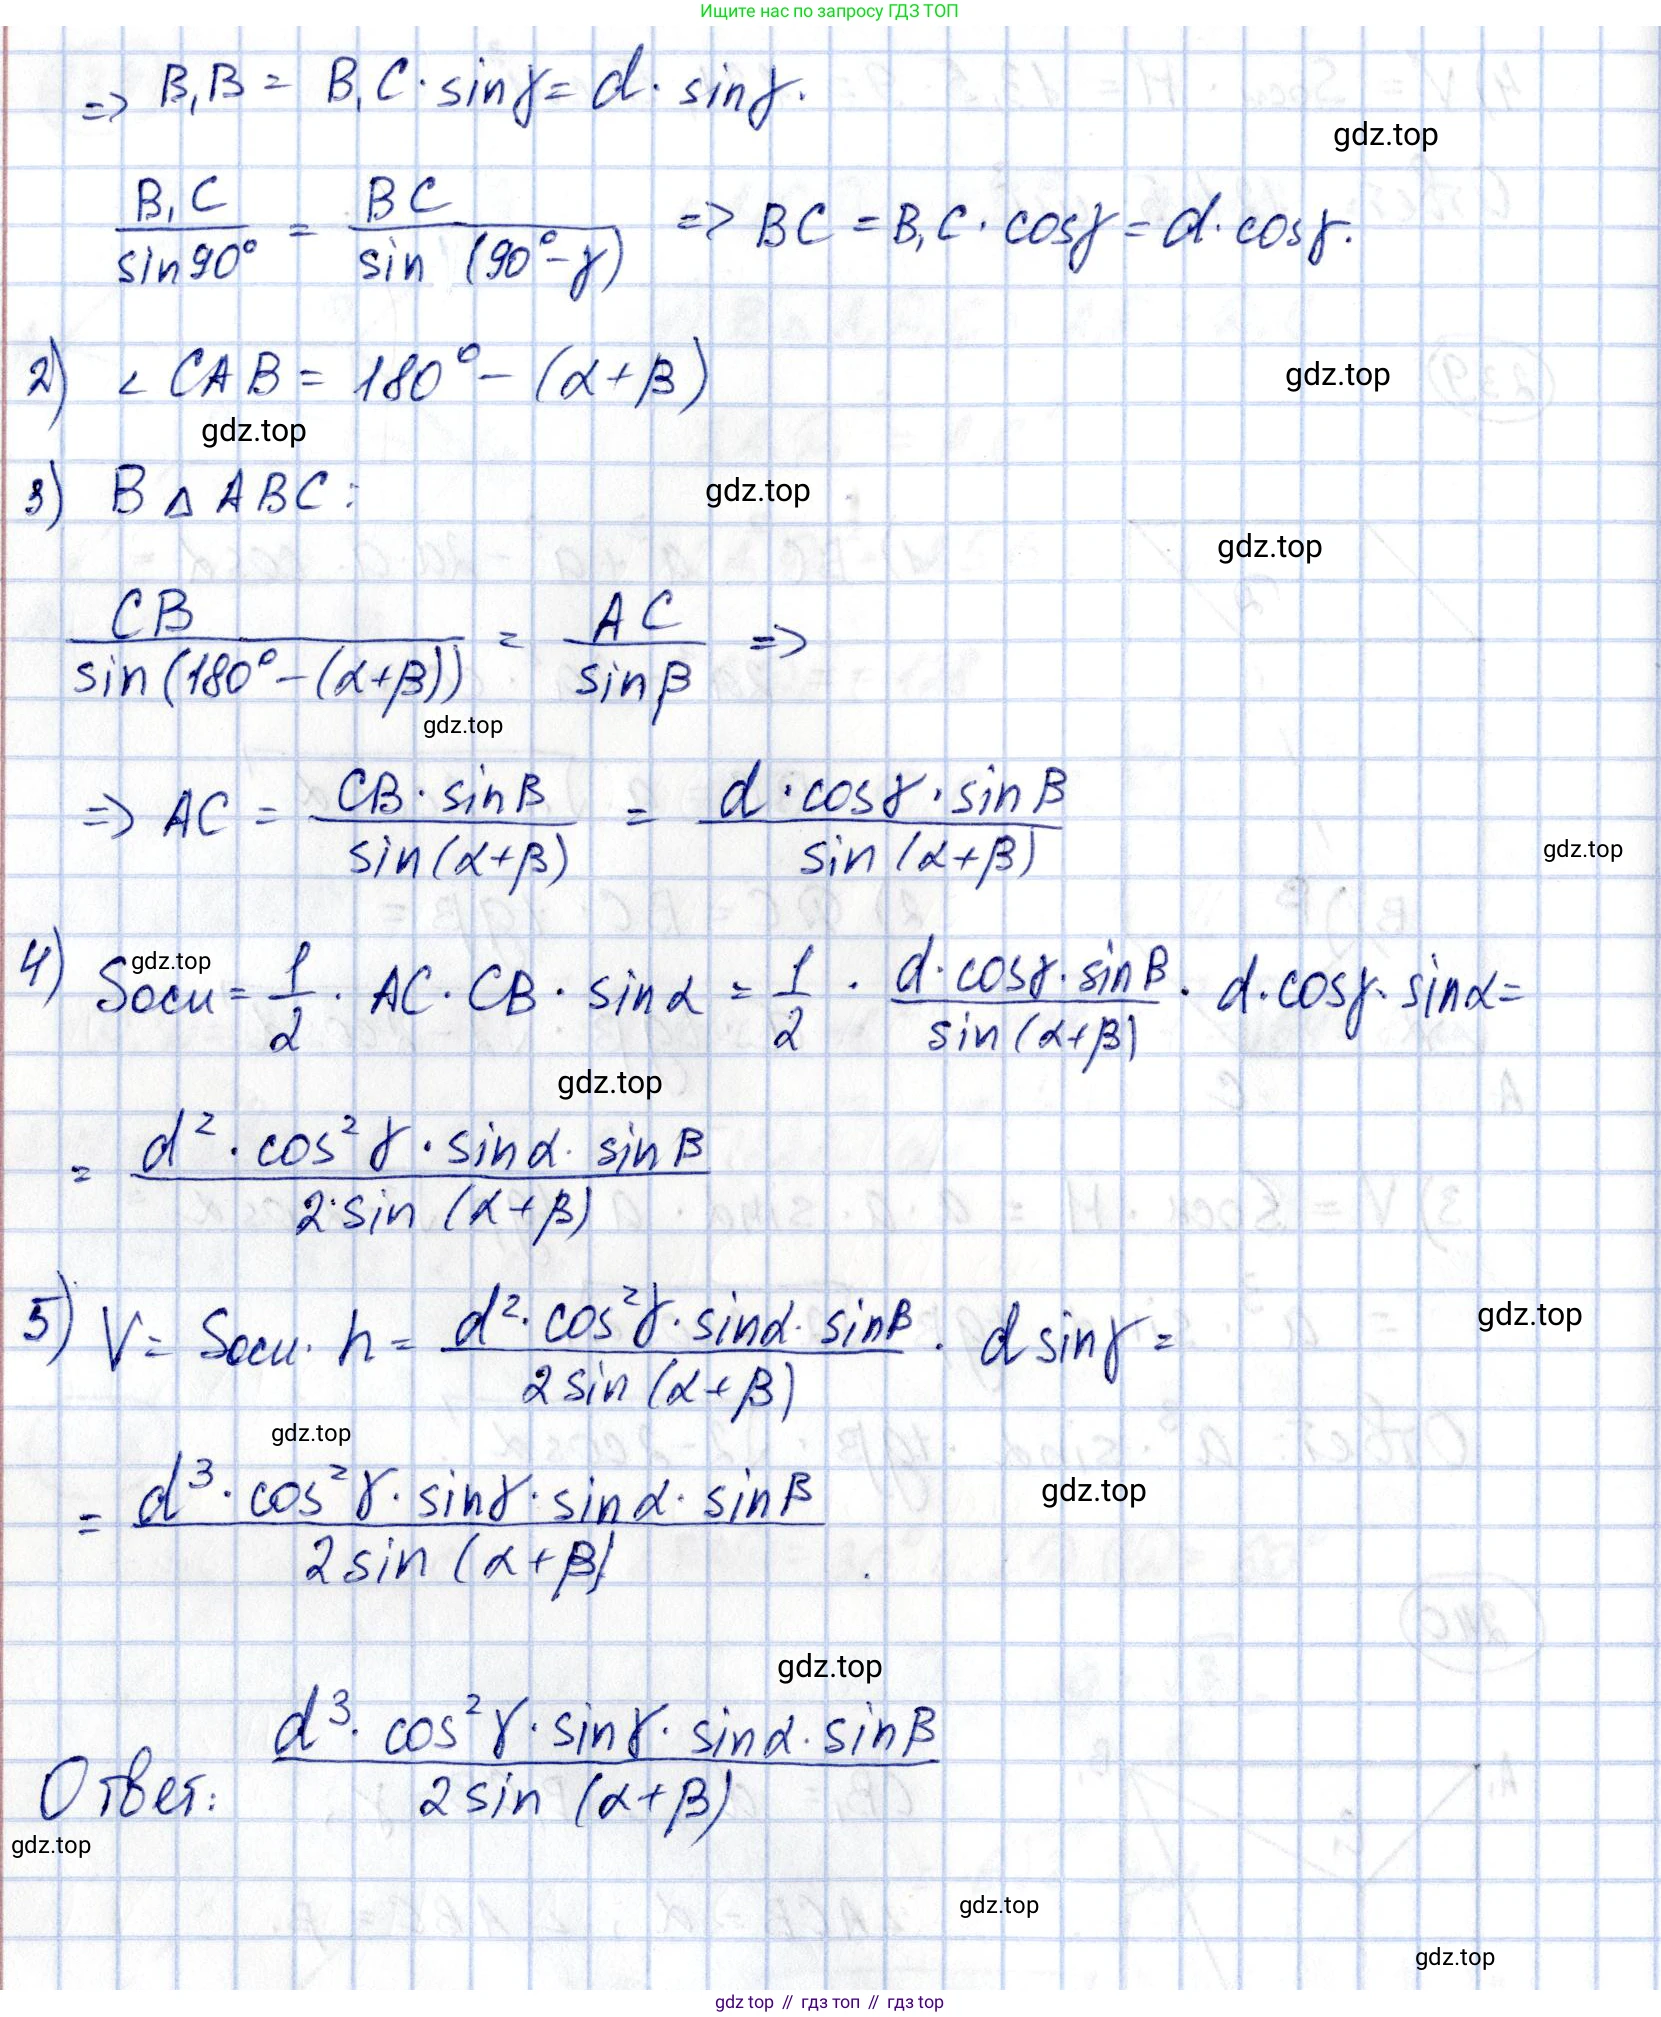 Ищите нас по запросу ГДЗ ТОП
=> B₁B = B₁C · sinγ = d · sinγ.
gdz.top
B₁C / sin90° = BC / sin (90° - γ) => BC = B₁C · cosγ = d · cosγ.
2) ∠ CAB = 180° - (α + β)
gdz.top
gdz.top
3) В Δ ABC:
gdz.top
gdz.top
CB / sin(180° - (α+β)) = AC / sinβ =>
gdz.top
=> AC = CB · sinβ / sin(α+β) = d · cosγ · sinβ / sin(α+β)
gdz.top
4) Sосн = 1/2 · AC · CB · sinα = 1/2 · d · cosγ · sinβ / sin(α+β) · d · cosγ · sinα =
gdz.top
gdz.top
= d² · cos²γ · sinα · sinβ / 2 · sin (α+β)
5) V = Sосн · h = d² · cos²γ · sinα · sinβ / 2 sin (α+β) · d sinγ =
gdz.top
gdz.top
= d³ · cos²γ · sinγ · sinα · sinβ / 2 sin (α+β)
gdz.top
gdz.top
Ответ: d³ · cos²γ · sinγ · sinα · sinβ / 2 sin (α+β)
gdz.top
gdz.top
gdz.top
gdz top // гдз топ // гдз top